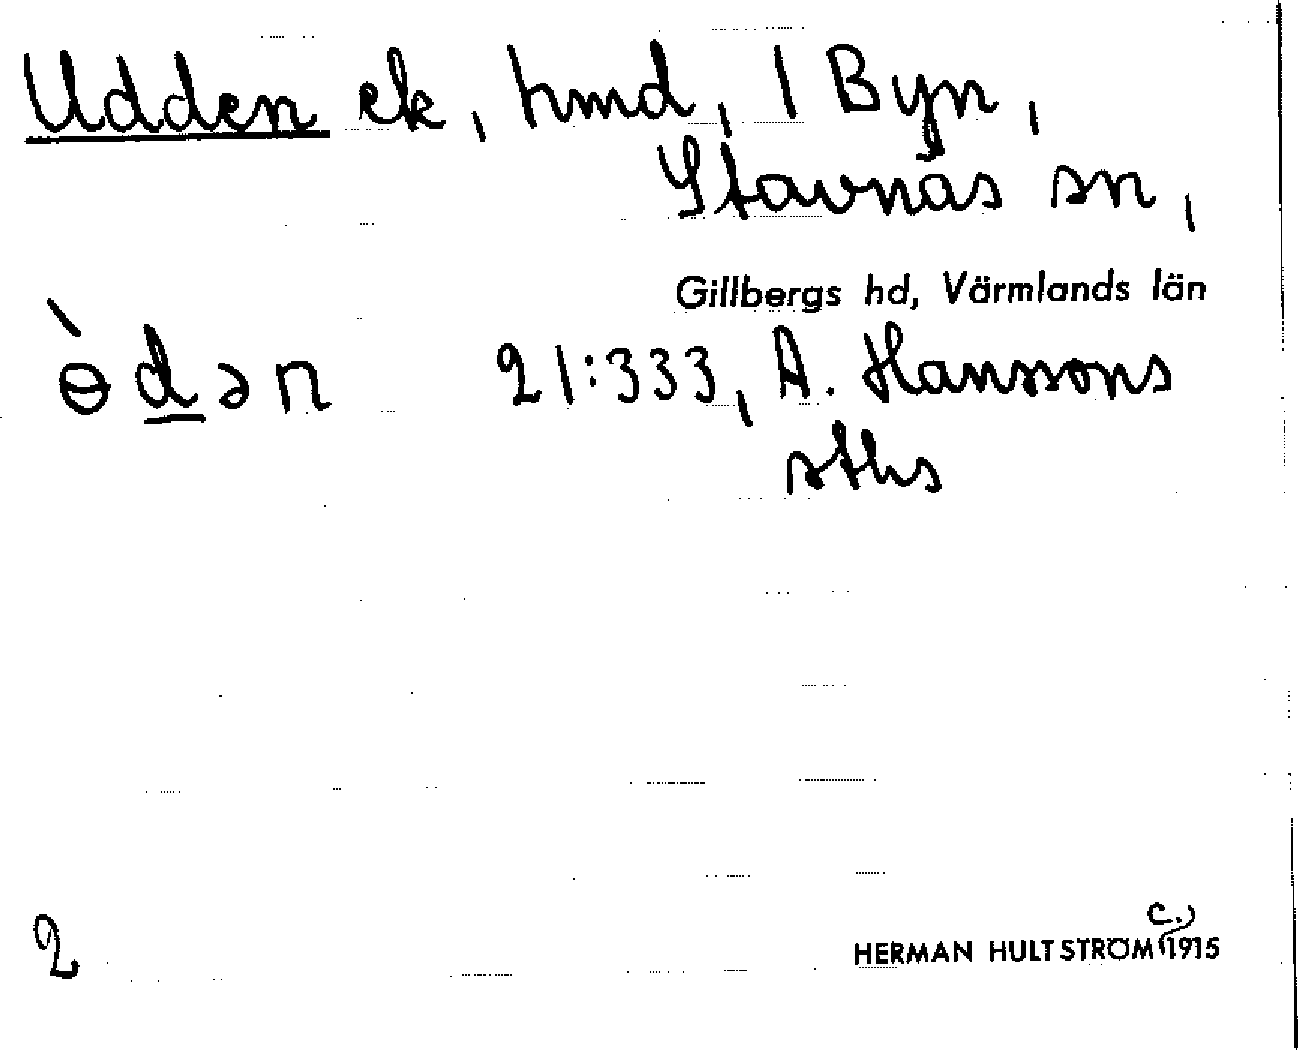 Udden ek, hmd, 1 Byn,
Stavnäs sn,
Gillbergs hd, Värmlands län
ɵ̀dən 21:333, A. Hanssons
sths
2 HERMAN HULTSTRÖM (c.) 1915